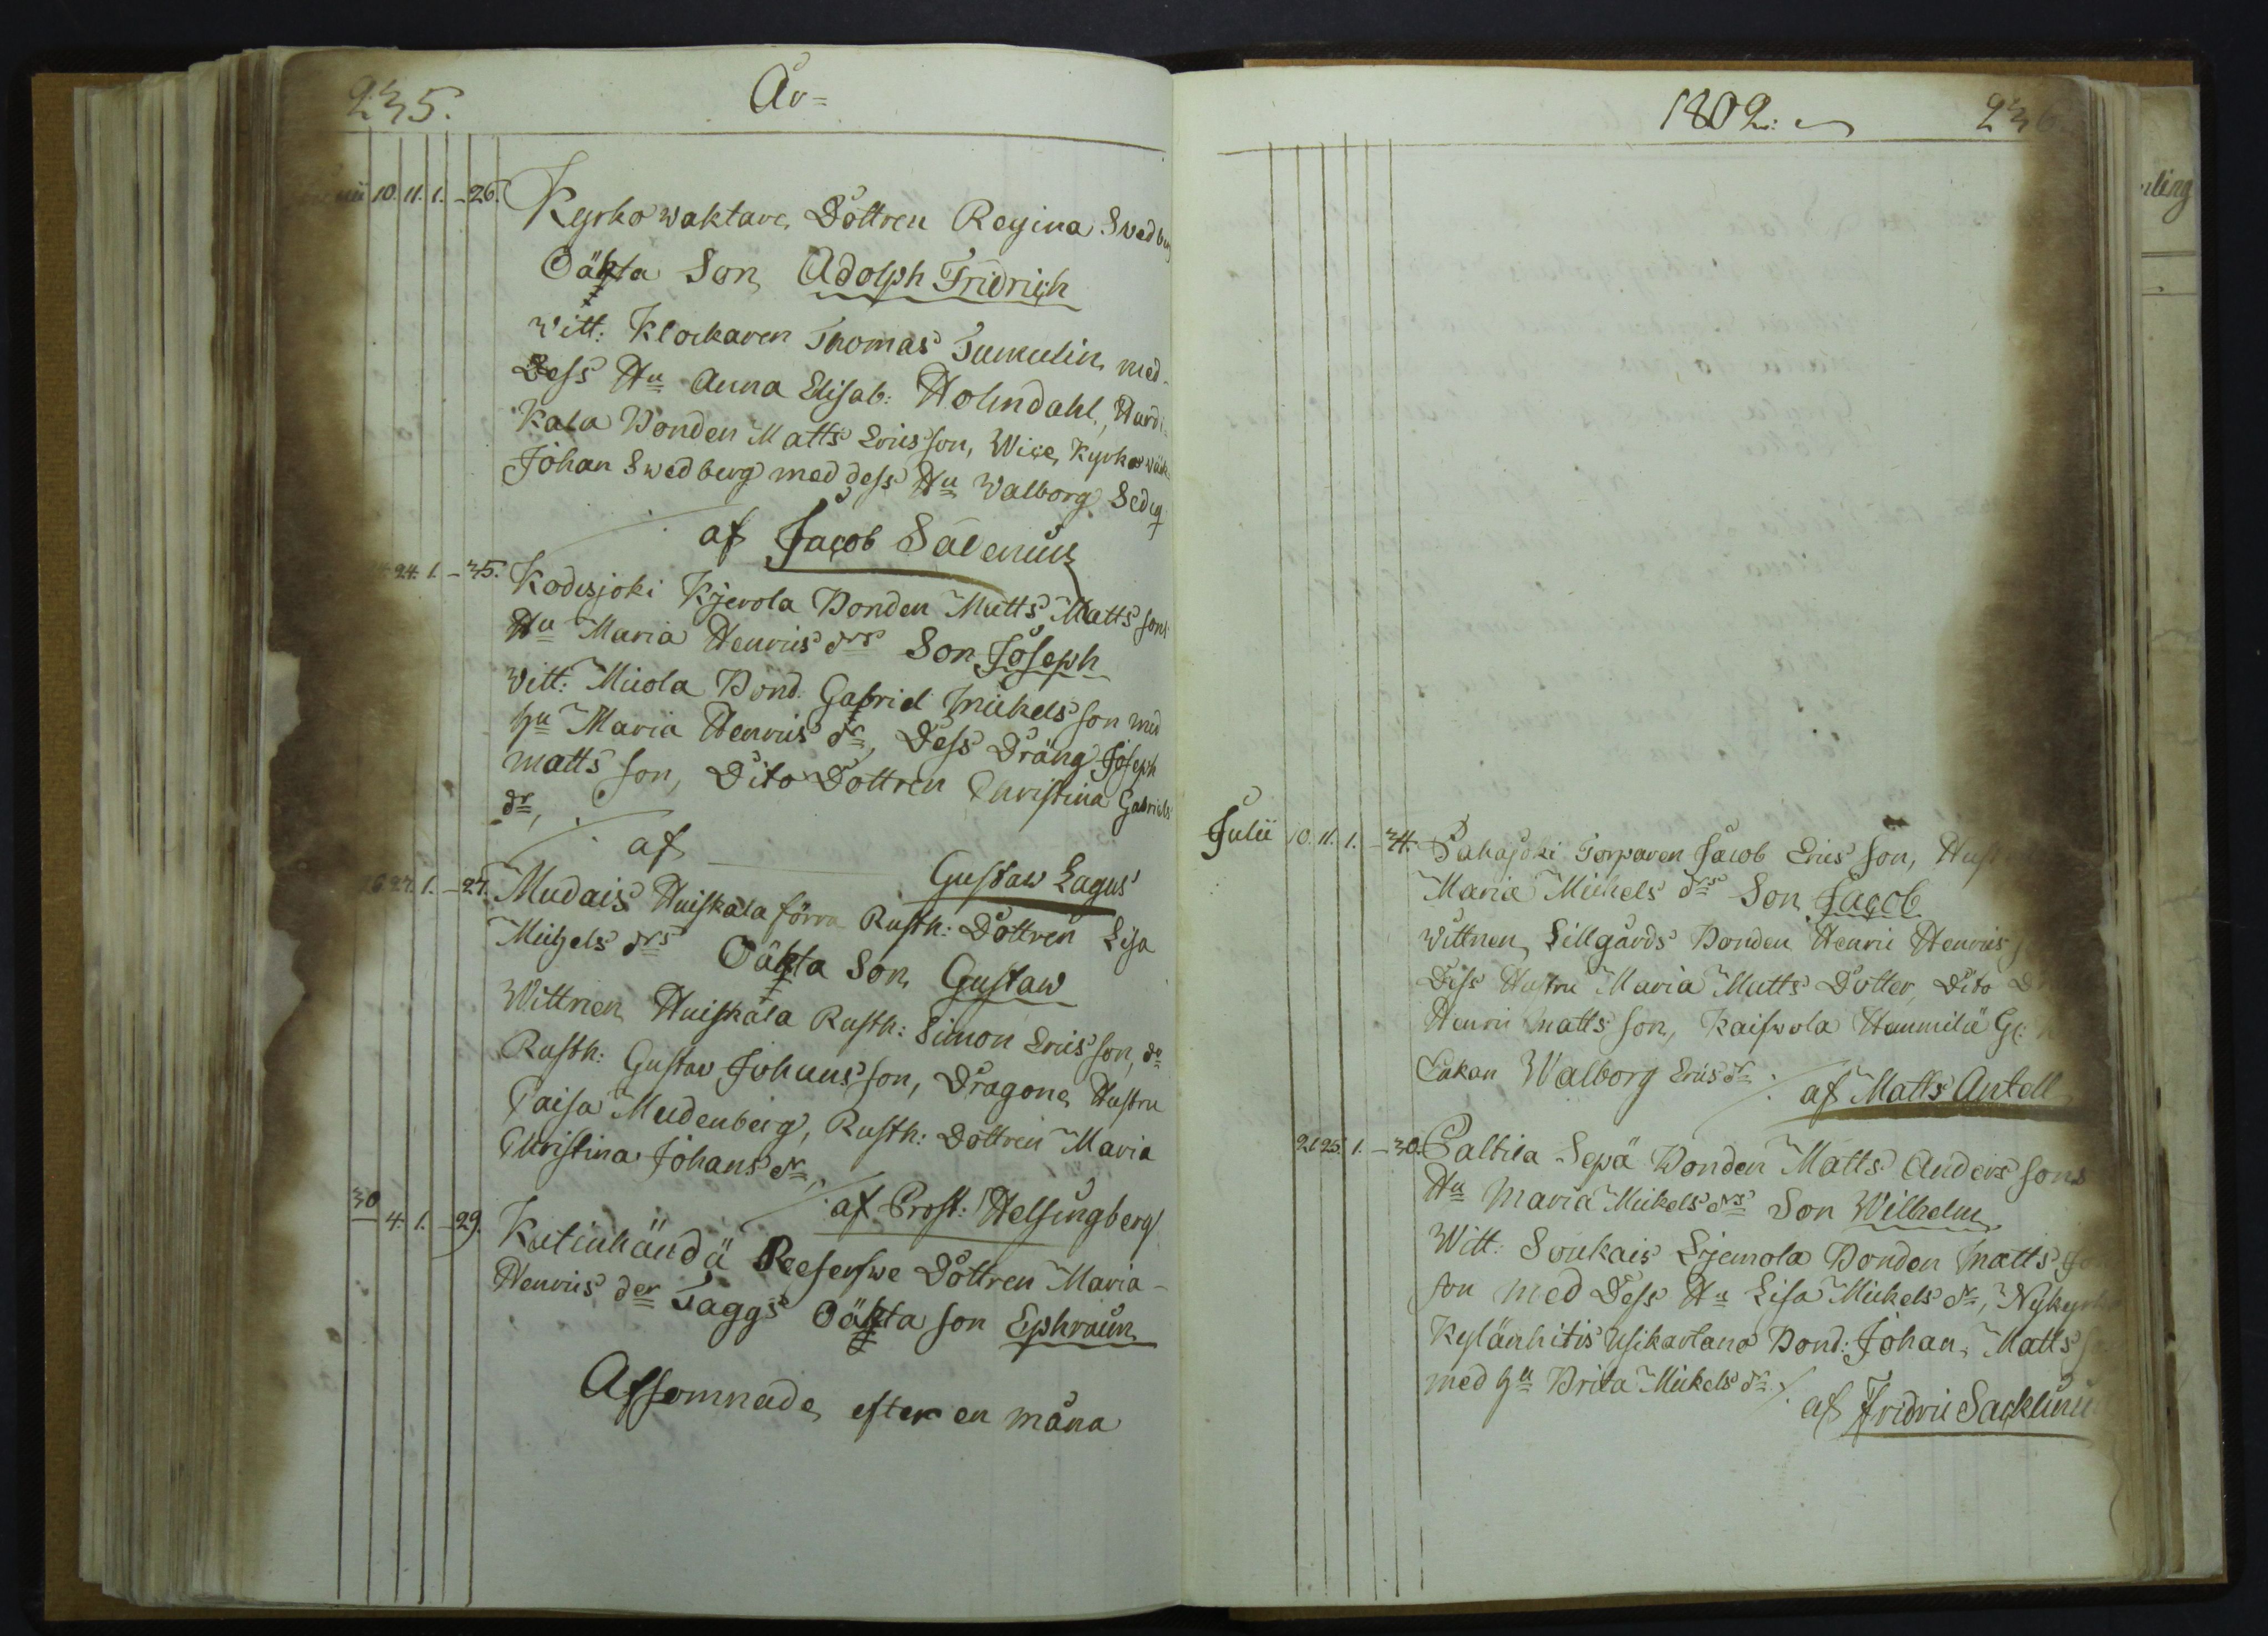 235.
År=
10. 11. 1. - 26. Kyrkowaktare Dottren Regina Swedberg
Oäkta Son Adolph Fridrich
Witt: Klockaren Thomas Tumulin med
Dess Hu Anna Elisab: Holmdahl, Hurdi
kala Bonden Matts Ericsson, Wice Kyrkowäk
Johan Swedberg med dess Hu Walborg Sedig
af Jacob Salenius
24. 1. - 35. Kodisjoki Kjerola Bonden Matts Matts sons
Hu Maria Henrics drs Son Joseph
Witt: Miiola Bond: Gabriel Mickels son med
hu Maria Henrics dr, Dess Dräng Joseph
Matts son, Dito Dottren Christina Gabriels
dr,
af Gustaw Lagus
26. 27. 1. - 27. Mudais Huiskala förra Rusth: Dottren Lisa
Michels drs Oäkta Son Gustaw
Wittnen Huiskala Rusth: Simon Ericsson, do
Rusth: Gustav Johansson, Dragone Hustru
Caisa Mudenberg, Rusth: Dottren Maria
Christina Johans dr,
af Prost: Helsingberg
30 4. 1. - 29. Kutinhändä Reeserfwe Dottren Maria
Henrics der Taggs Oäkta son Ephraim
Afsomnade efter en måna
1802.
236.
Julii 10. 11. 1. - 34. Pahajoki Torparen Jacob Erics son, Hust
Maria Michels drs Son Jacob
Wittnen Lillgårds Bonden Henric Henrics
Dess Hustru Maria Matts Dotter, Dito Dr
Henric Matts son, Kaiswola Hannula Gl:
Enkan Walborg Erics dr
af Matts Antell
21 25. 1. - 30. Paltila Sepä Bonden Matts Anders sons
Hu Maria Mickels drs Son Wilhelm
Witt: Soukais Erjemola Bonden Matts
son med Dess Hu Lisa Mickels dr, Nykyrko
Kylänhitis Usikartano Bond: Johan Matts
med hu Brita Mickels dr
af Fridric Sacklinu